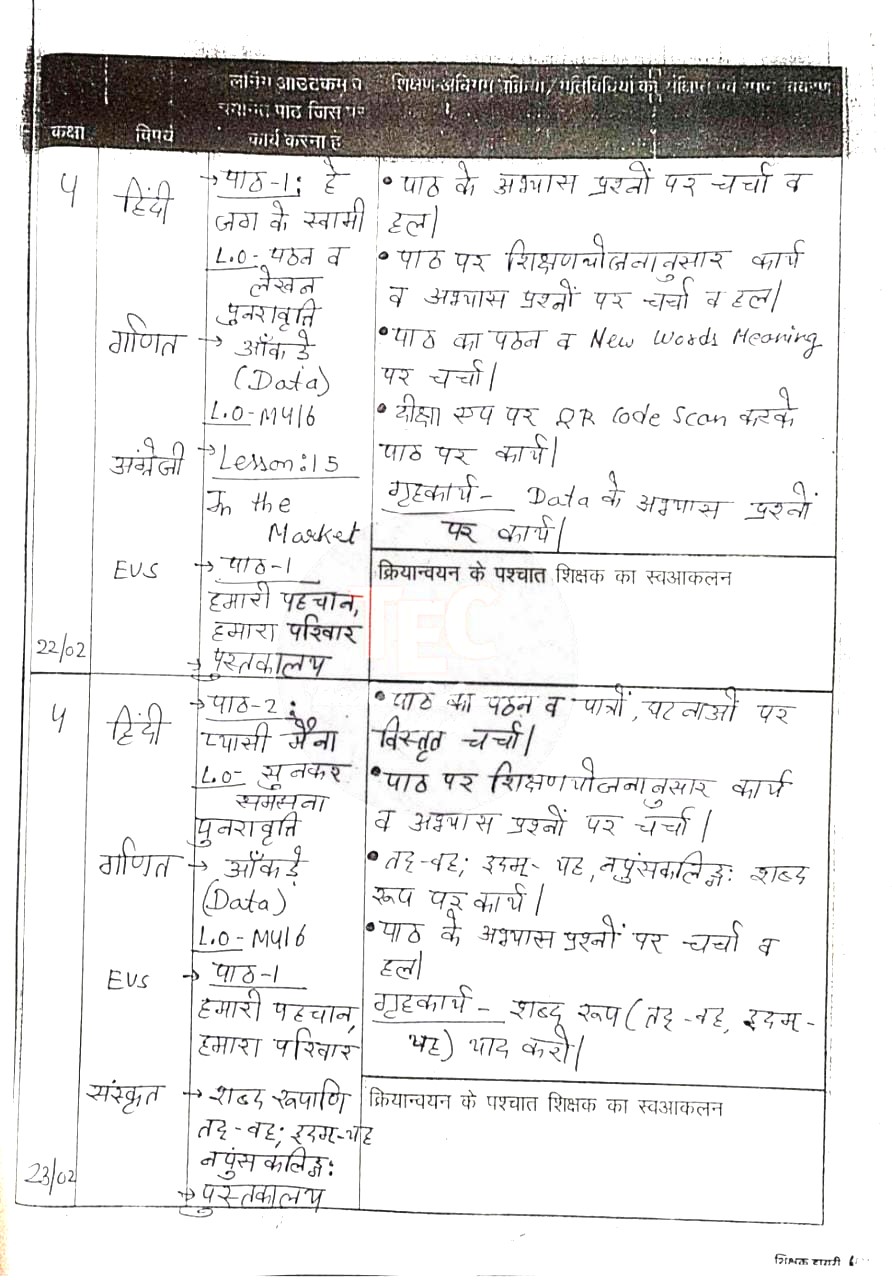 लर्निंग आउटकम व शिक्षण-अधिगम प्रक्रिया/गतिविधियां का संक्षिप्त एवं स्पष्ट
पाठ जिस पर
कक्षा विषय कार्य करना है
4 हिंदी → पाठ-1: हे
जग के स्वामी
L.O- पठन व
लेखन
पुनरावृति
गणित → आँकड़े
(Data)
L.O-M416
अंग्रेजी → Lesson:15
In the
Market
EVS → पाठ-1
हमारी पहचान,
हमारा परिवार
→ पुस्तकालय
22/02
• पाठ के अभ्यास प्रश्नों पर चर्चा व
हल।
• पाठ पर शिक्षणयोजनानुसार कार्य
व अभ्यास प्रश्नों पर चर्चा व हल।
• पाठ का पठन व New Words Meaning
पर चर्चा।
• दीक्षा एप पर QR Code Scan करके
पाठ पर कार्य।
गृहकार्य- Data के अभ्यास प्रश्नों
पर कार्य।
क्रियान्वयन के पश्चात शिक्षक का स्वआकलन
TEC
4 हिंदी → पाठ-2:
प्यासी मैना
L.O- सुनकर
समझना
पुनरावृति
गणित → आँकड़े
(Data)
L.O-M416
EVS → पाठ-1
हमारी पहचान,
हमारा परिवार
संस्कृत → शब्द रूपाणि
तद्-वह; इदम्-यह
नपुंसकलिङ्गः
→ पुस्तकालय
23/02
• पाठ का पठन व पात्रों, घटनाओं पर
विस्तृत चर्चा।
• पाठ पर शिक्षणयोजनानुसार कार्य
व अभ्यास प्रश्नों पर चर्चा।
• तद्-वह; इदम्- यह, नपुंसकलिङ्गः शब्द
रूप पर कार्य।
• पाठ के अभ्यास प्रश्नों पर चर्चा व
हल।
गृहकार्य- शब्द रूप (तद्-वह, इदम्-
यह) याद करो।
क्रियान्वयन के पश्चात शिक्षक का स्वआकलन
शिक्षक डायरी